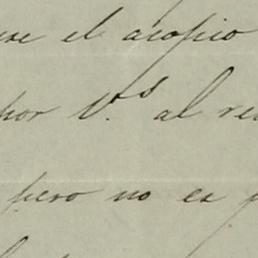 el acopio
por V.s al
pero no es